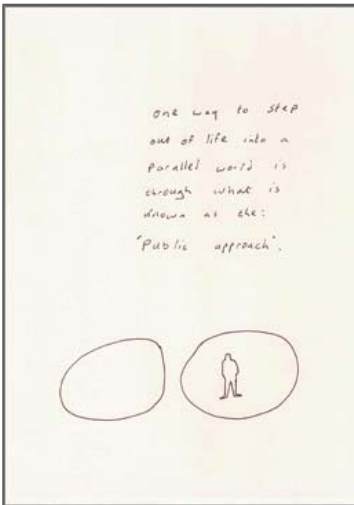 one way to step
out of life into a
parallel world is
through what is
known as the:
'Public approach'.